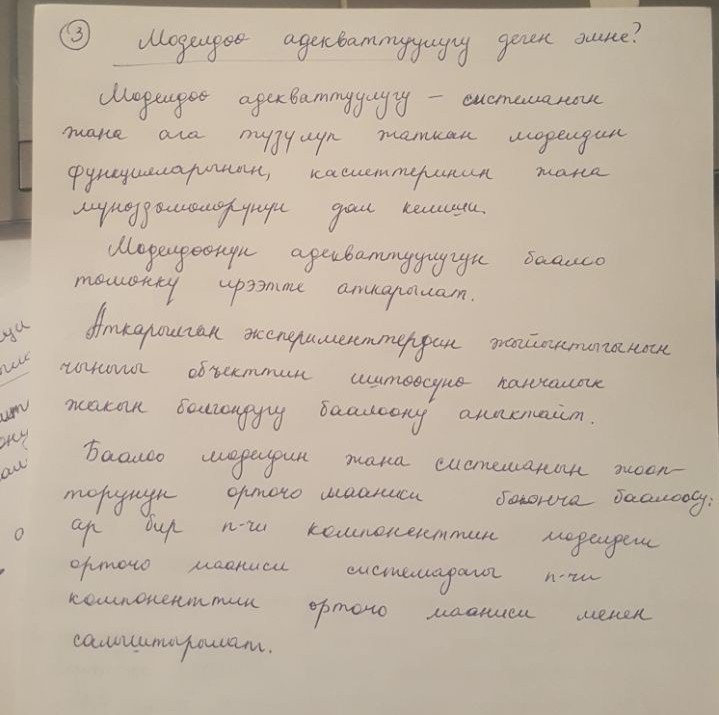 ③ Моделдөө адекваттуулугу деген эмне?
Моделдөө адекваттуулугу – системанын
жана ага түзүлүп жаткан моделдин
функцияларынын, касиеттеринин жана
мүнөздөмөлөрүнүн дал келиши.
Моделдөөнүн адекваттуулугун баалоо
төмөнкү ирээтте аткарылат.
Аткарылган эксперименттердин жыйынтыгынын
чыныгы объекттин иштөөсүнө канчалык
жакын болгондугу баалоону аныктайт.
Баалоо моделдин жана системанын жооп-
торунун орточо мааниси боюнча баалоосу:
ар бир n-чи компоненттин моделдеги
орточо мааниси системадагы n-чи
компоненттин орточо мааниси менен
салыштырылат.